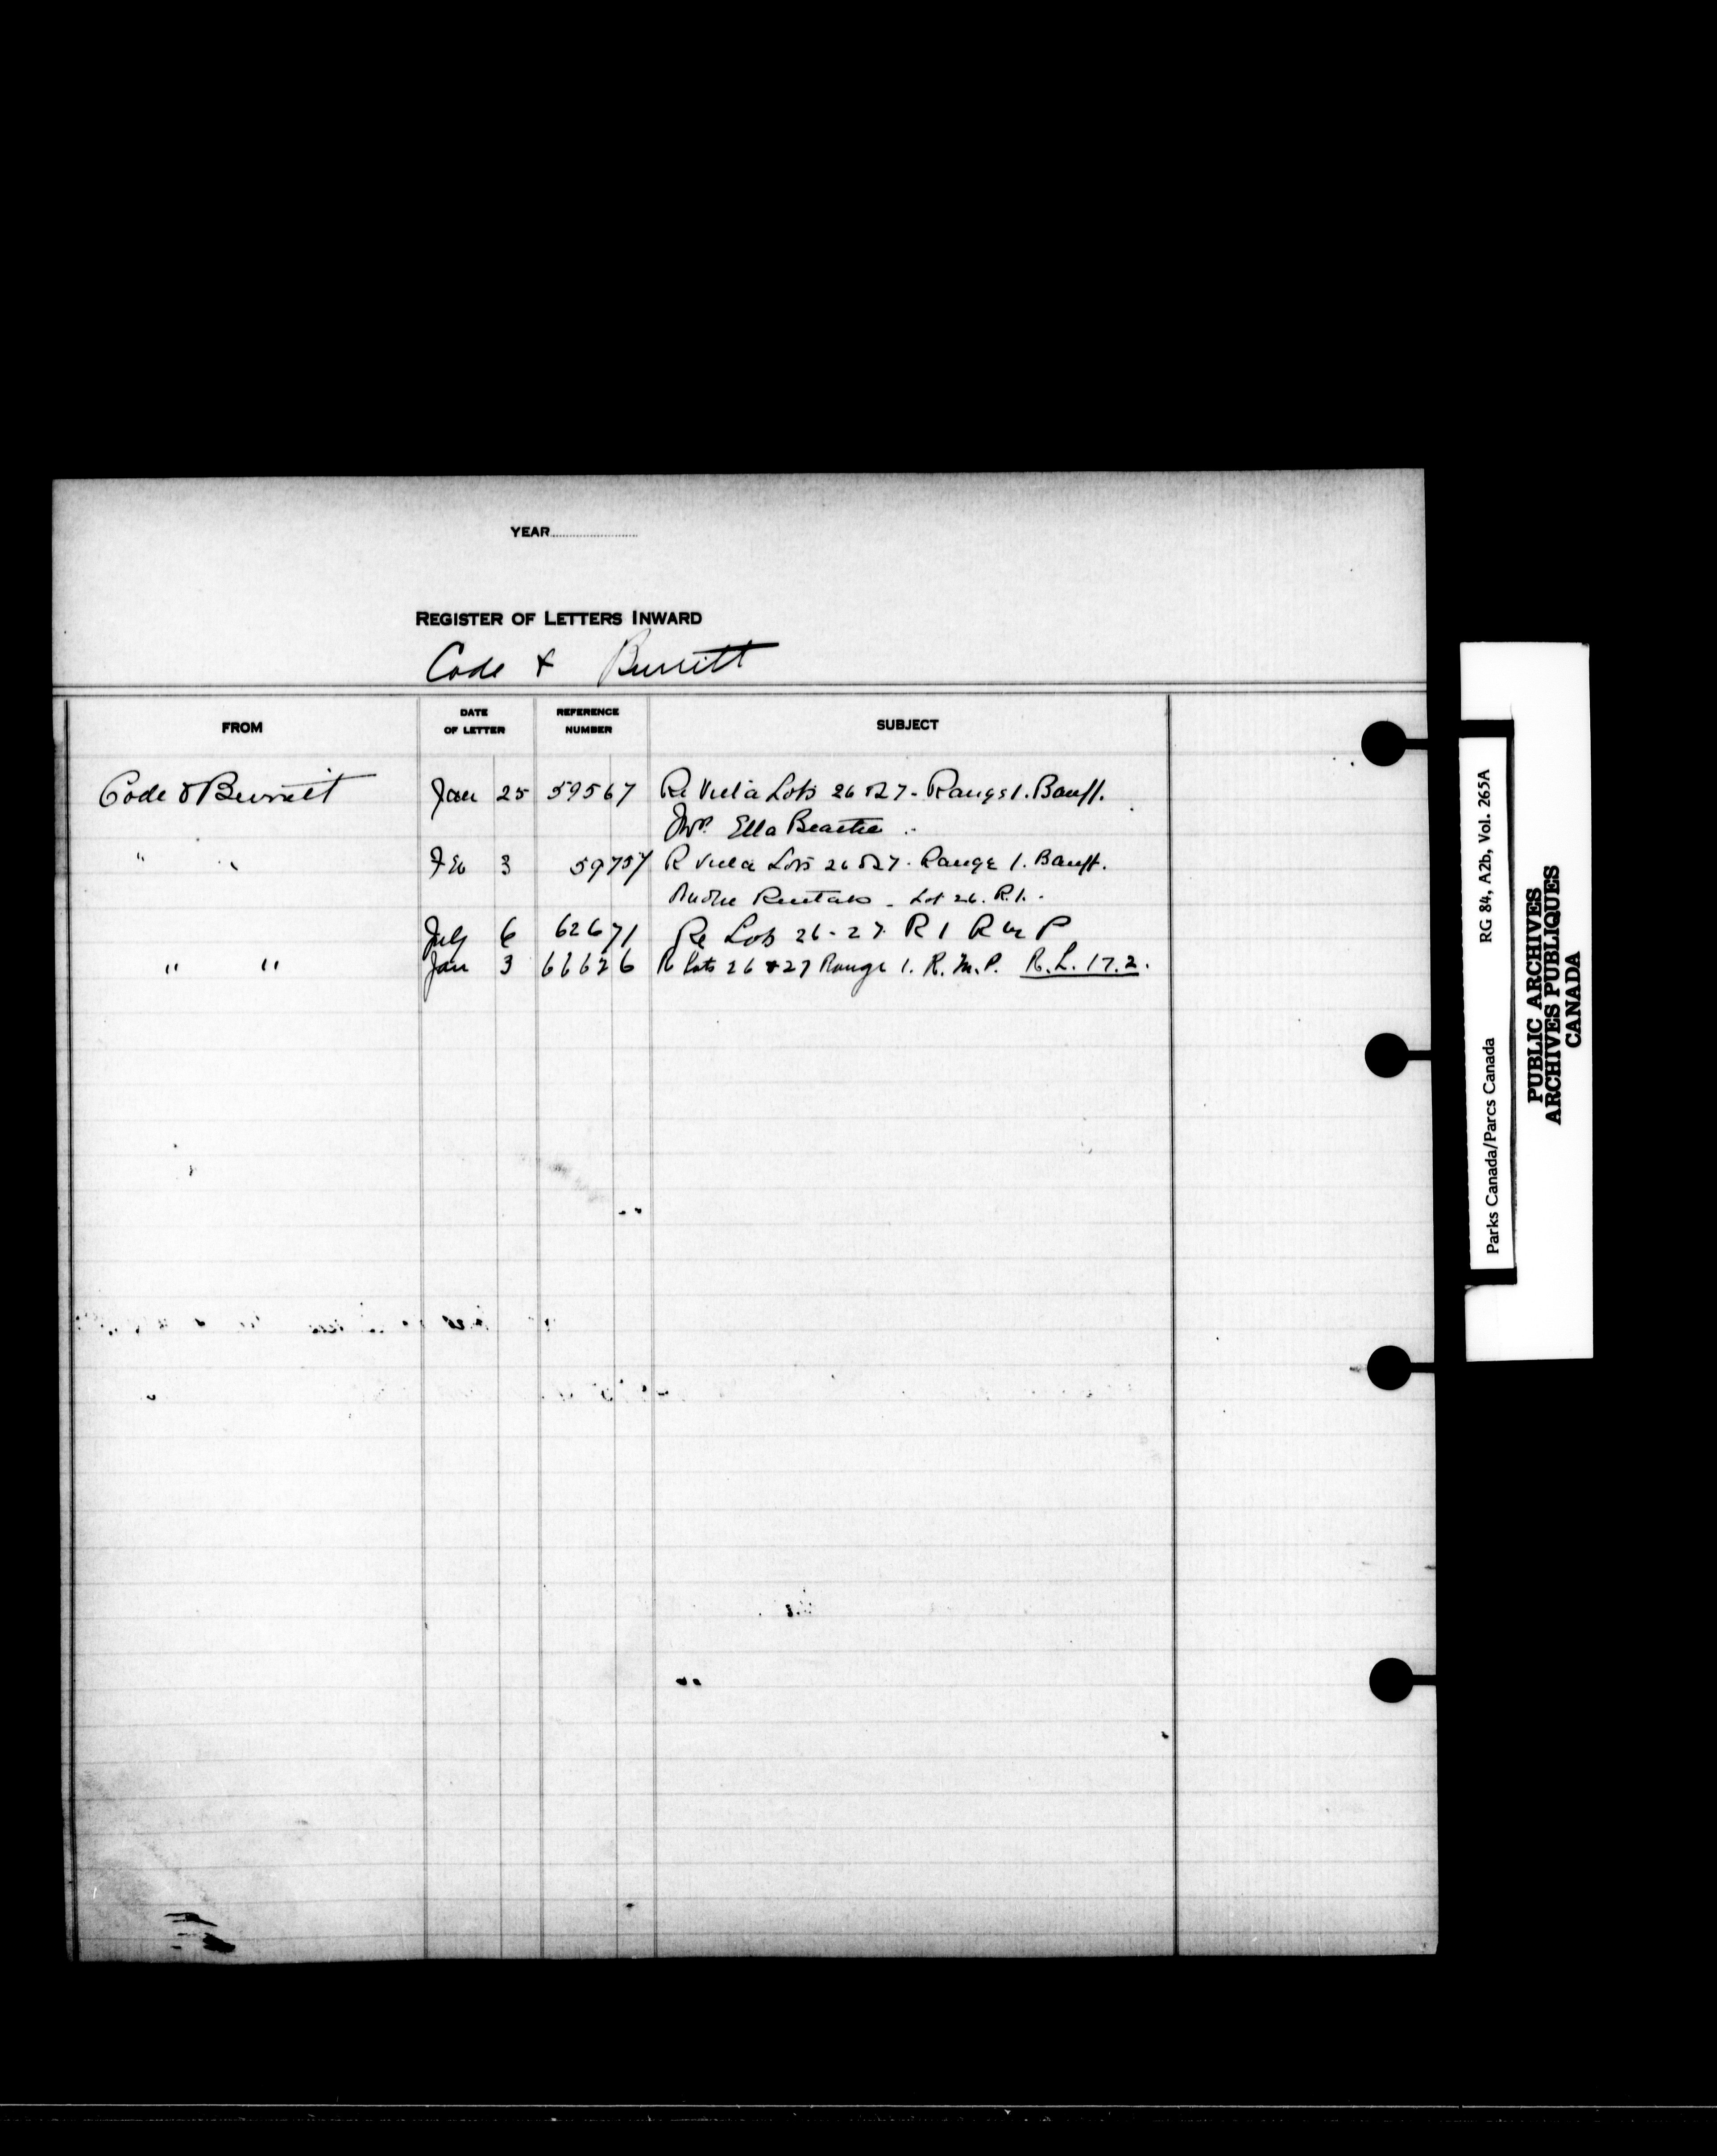 YEAR
REGISTER OF LETTERS INWARD
Code & Burritt
FROM DATE OF LETTER REFERENCE NUMBER SUBJECT
Code & Burritt Jan 25 59567 Re Villa Lots 26 & 27 - Range 1. Banff.
Mrs. Ella Beattie
" " Feb 3 59757 R Villa Lots 26 & 27. Range 1. Banff.
Rentals - Lot 26. R.1.
July 6 62671 Re Lots 26-27 R 1 R M P
" " Jan 3 66626 R Lots 26 & 27 Range 1. R.M.P. R.L.17.2.
Parks Canada/Parcs Canada RG 84, A2b, Vol. 265A
PUBLIC ARCHIVES
ARCHIVES PUBLIQUES
CANADA